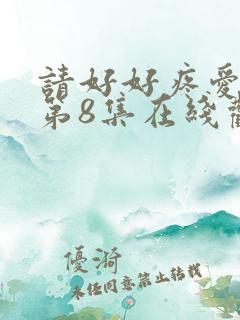 請好好疼愛
第8集在綫觀
優漪
未经同意禁止转载